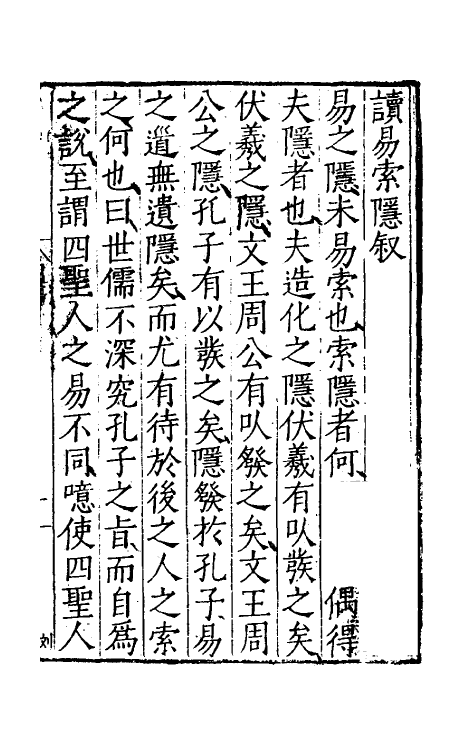 讀易索隱叙
易之隱未易索也索隱者何　　偶得
夫隱者也夫造化之隱伏羲有以發之矣
伏羲之隱文王周公有以發之矣文王周
公之隱孔子有以發之矣隱發於孔子易
之道無遺隱矣而尤有待於後之人之索
之何也曰世儒不深究孔子之旨而自爲
之說至謂四聖人之易不同噫使四聖人